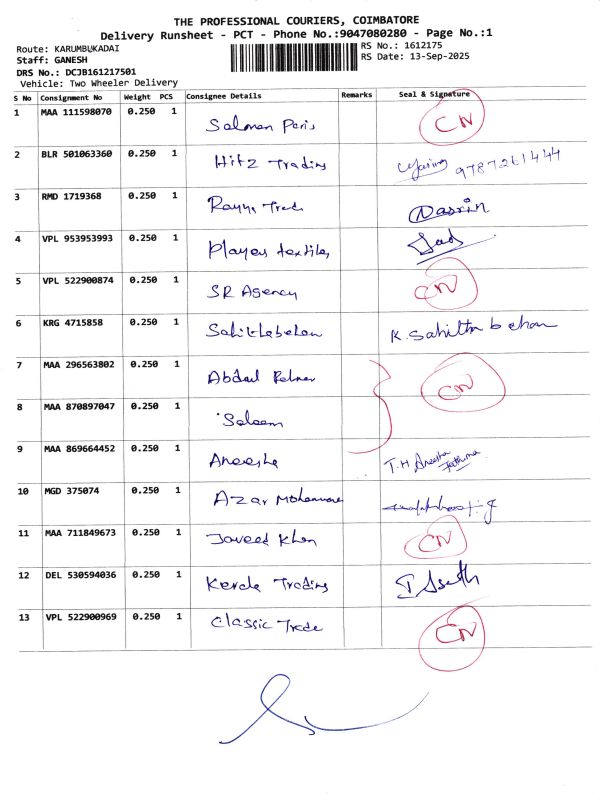 THE PROFESSIONAL COURIERS, COIMBATORE
Delivery Runsheet - PCT - Phone No.:9047080280 - Page No.:1
Route: KARUMBUKADAI RS No.: 1612175
Staff: GANESH RS Date: 13-Sep-2025
DRS No.: DCJB161217501
Vehicle: Two Wheeler Delivery
S No Consignment No Weight PCS Consignee Details Remarks Seal & Signature
1 MAA 111598070 0.250 1 Salman Paris CN
2 BLR 501063360 0.250 1 Hitz Trading 9787261444
3 RMD 1719368 0.250 1 Nasrin
4 VPL 953953993 0.250 1 Players textiles
5 VPL 522900874 0.250 1 SR Agency CN
6 KRG 4715858 0.250 1 K. Sahitha
7 MAA 296563802 0.250 1 Abdul CN
8 MAA 870897047 0.250 1 Saleem
9 MAA 869664452 0.250 1 Aneesha T.H Aneesha Fathima
10 MGD 375074 0.250 1 Azar
11 MAA 711849673 0.250 1 Javeed Khan CN
12 DEL 530594036 0.250 1 Kerala Trading
13 VPL 522900969 0.250 1 Classic Trade CN